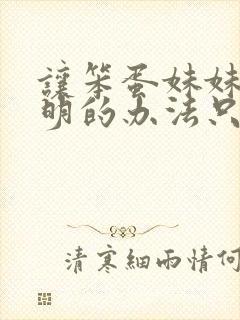 讓笨蛋妹妹
明的办法只
清寒細雨情何